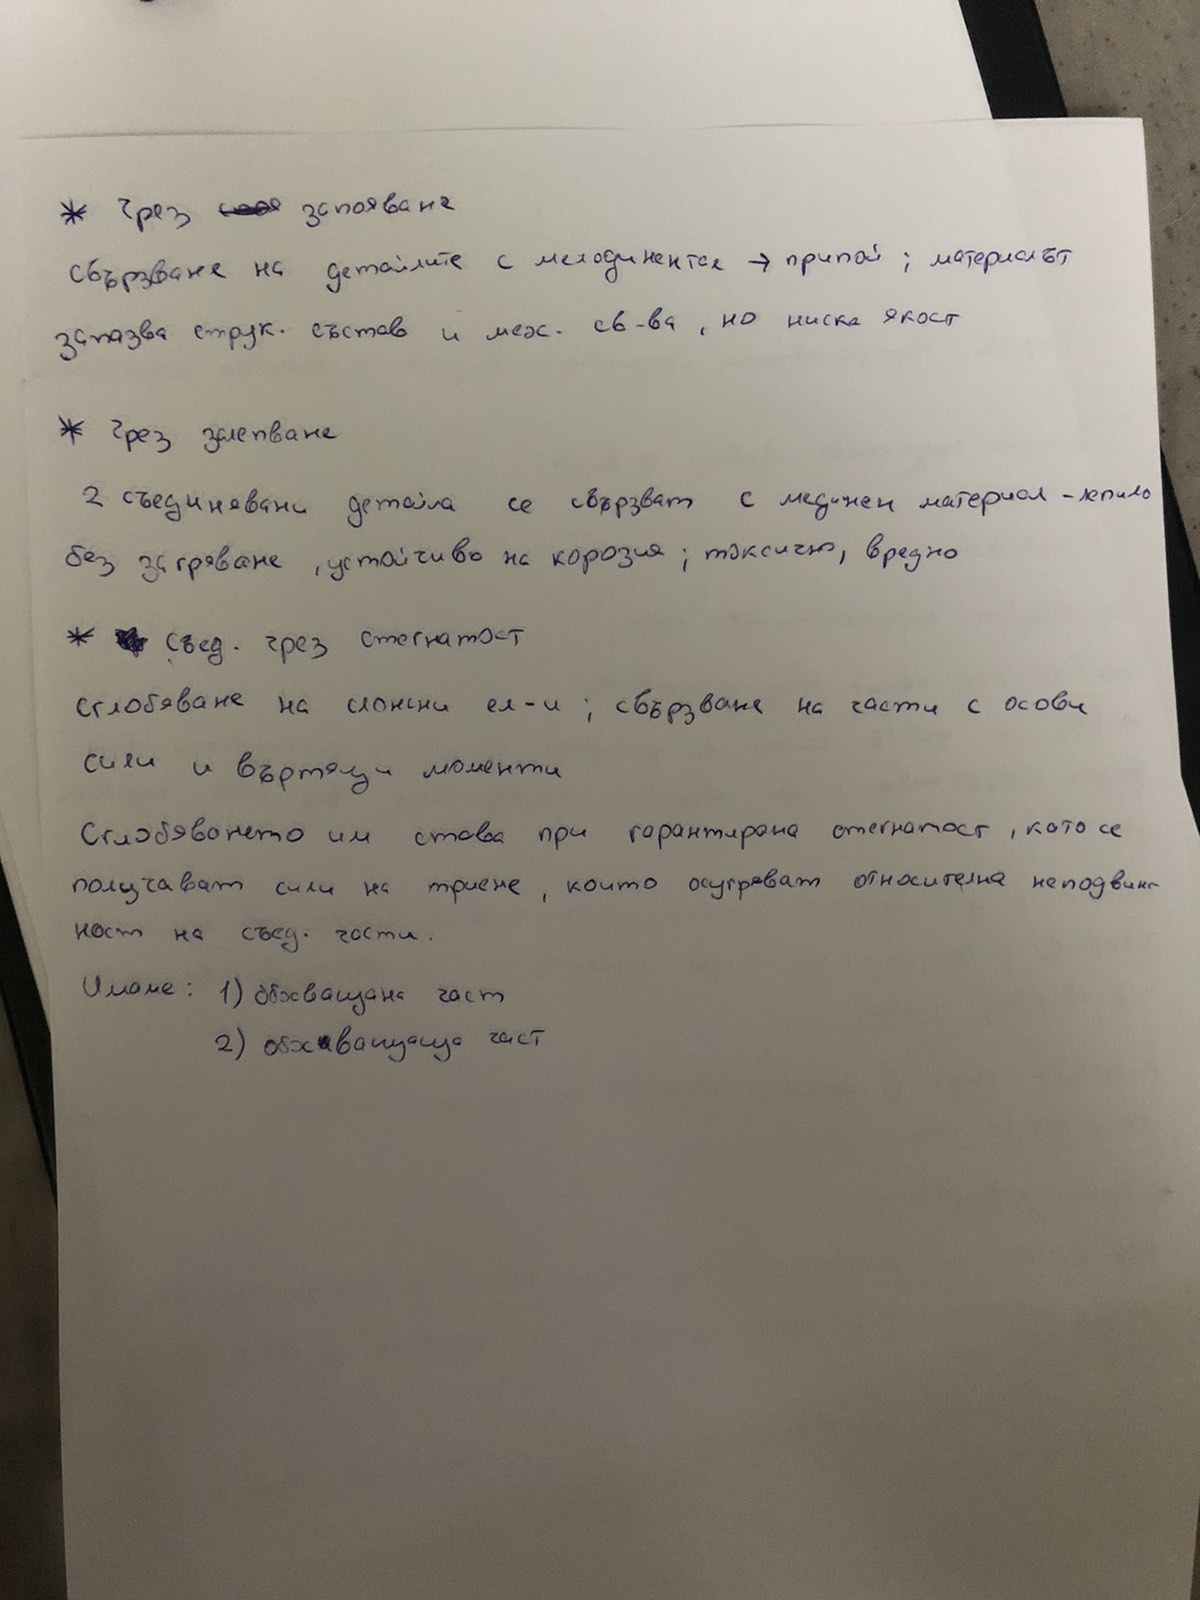 * Чрез запояване
свързване на детайлите с → припой; материалът
запазва струк. състав и мех. св-ва, но ниска якост
* Чрез залепване
2 съединявани детайла се свързват с материал - лепило
без загряване, устойчиво на корозия; токсично, вредно
* Съед. чрез стегнатост
сглобяване на сложни ел-и; свързване на части с осови
сили и въртящи моменти
Сглобяването им става при гарантирана стегнатост, като се
получават сили на триене, които осигряват относителна неподвиж
ност на съед. части.
Имаме: 1) обхващана част
2) обхващаща част